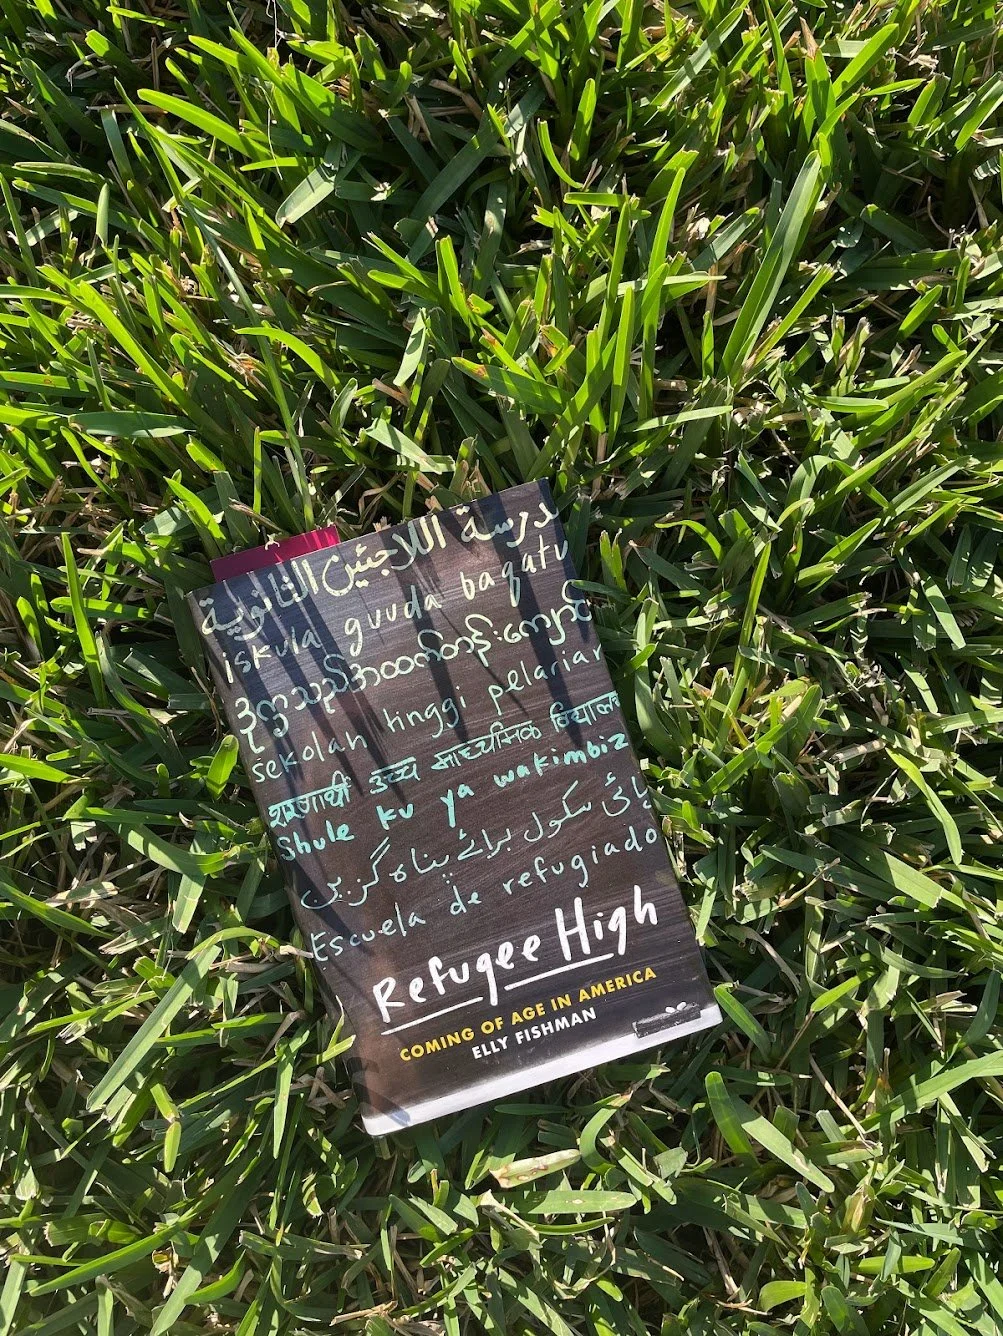 مدرسة اللاجئين الثانوية
iskula guuda baqatu
ဒုက္ခသည်အထက်တန်းကျောင်း
sekolah tinggi pelarian
शरणार्थी उच्च माध्यमिक विद्यालय
Shule ku ya wakimbiz
ہائی سکول برائے پناہ گزین
Escuela de refugiado
Refugee High
COMING OF AGE IN AMERICA
ELLY FISHMAN